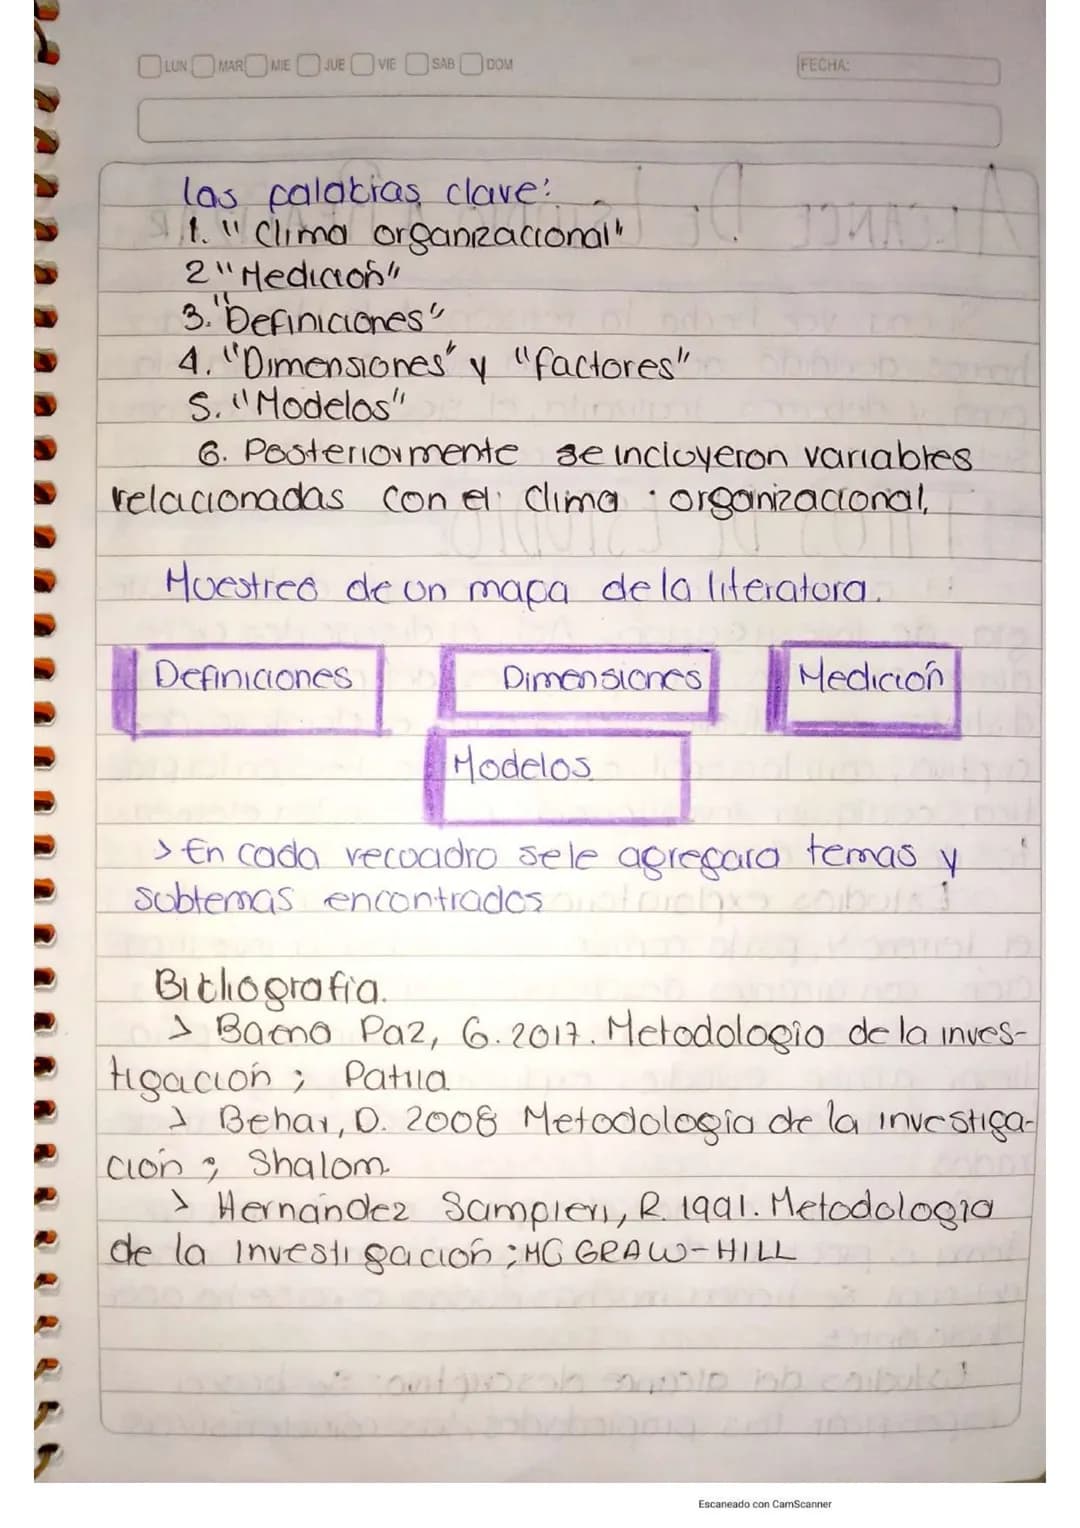 LUN MAR MIE JUE VIE SAB DOM FECHA:
las palabras clave:
1. "Clima organizacional"
2 "Medición"
3. "Definiciones"
4. "Dimensiones" y "factores"
5. "Modelos"
6. Posteriormente se incluyeron variables
relacionadas con el clima organizacional.
Muestreo de un mapa de la literatura.
Definiciones Dimensiones Medición
Modelos
> En cada recuadro se le agregara temas y
subtemas encontrados
Bibliografía.
> Baena Paz, G. 2017. Metodologia de la inves-
tigación ; Patria
> Behar, D. 2008 Metodología de la investiga-
ción ; Shalom.
> Hernández Sampieri, R. 1991. Metodologia
de la investigación ; MC GRAW-HILL
Escaneado con CamScanner